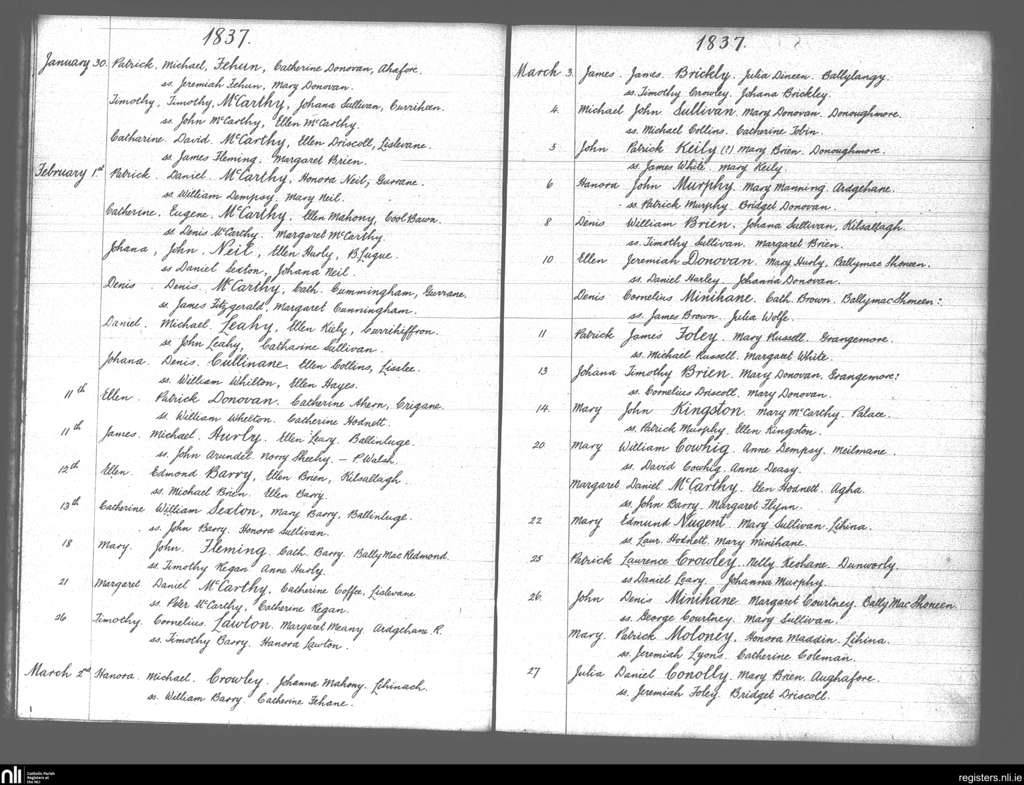 1837.
January 30. Patrick. Michael. Fehun, Catherine Donovan, Ahafore.
ss. Jeremiah Fehun, Mary Donovan.
Timothy, Timothy, McCarthy, Johana Sullivan, Curriheen.
ss. John McCarthy, Ellen McCarthy.
Catharine. David. McCarthy, Ellen Driscoll, Lislevane.
ss. James Fleming. Margaret Brien.
February 1st Patrick. Daniel. McCarthy. Honora Neil, Gurrane.
ss. William Dempsy, Mary Neil.
Catherine. Eugene, McCarthy. Ellen Mahony, Cool Bawn.
ss. Denis McCarthy. Margaret McCarthy
Johana, John, Neil, Ellen Hurly, B.lugue.
ss Daniel Sexton, Johana Neil.
Denis Denis. McCarthy, Cath. Cummingham, Gurrane.
ss. James Fitzgerald, Margaret Cunningham.
Daniel. Michael. Leahy, Ellen Kiely, Currihiffron.
ss John Leahy, Catharine Sullivan.
Johana. Denis. Cullinane. Ellen Collins, Lisslee.
ss. William Whilton, Ellen Hayes.
11th Ellen. Patrick Donovan. Catherine Ahern, Crigane.
ss. William Whelton. Catherine Hodnett.
11th James. Michael. Hurly. Ellen Leary. Ballinluge.
ss. John Arundel Norry Sheehy. — P. Walsh.
12th Ellen. Edmond Barry, Ellen Brien, Kilsallagh.
ss. Michael Brien. Ellen Barry.
13th Catherine William Sexton, Mary Barry, Ballinluge.
ss. John Barry. Honora Sullivan.
18 Mary. John. Fleming. Cath. Barry. Bally Mac Redmond.
ss. Timothy Regan Anne Hurly.
21 Margaret Daniel McCarthy, Catherine Coffee, Lislevane
ss. Peter McCarthy, Catherine Regan.
26 Timothy. Cornelius. Lawton. Margaret Meany Ardgehane R.
ss. Timothy Barry. Hanora Lawton.
March 2nd Hanora. Michael. Crowley. Johanna Mahony. Lihinach.
ss. William Barry. Catherine Fehane.
1837.
March 3. James. James. Brickly. Julia Dineen. Ballylangy.
ss. Timothy Crowley. Johana Brickley.
4. Michael John Sullivan. Mary Donovan. Donoughmore.
ss. Michael Collins. Catherine Tobin.
5 John Patrick Keily (?) Mary Brien. Donoughmore.
ss. James White. Mary Keily.
6 Hanora John Murphy. Mary Manning. Ardgehane.
ss. Patrick Murphy. Bridget Donovan.
8 Denis William Brien. Johana Sullivan, Kilsallagh.
ss. Timothy Sullivan. Margaret Brien.
10 Ellen Jeremiah Donovan. Mary Hurly, Ballymac Shoneen.
ss. Daniel Harley. Johanna Donovan.
Denis Cornelius Minihane. Cath. Brown. Ballymac Shoneen:
ss. James Brown. Julia Wolfe.
11 Patrick James Foley. Mary Russell. Grangemore.
ss. Michael Russell. Margaret White.
13 Johana Timothy Brien. Mary Donovan. Grangemore:
ss. Cornelius Driscoll. Mary Donovan.
14. Mary John Kingston. Mary McCarthy. Palace.
ss. Patrick Murphy. Ellen Kingston.
20 Mary William Cowhig. Anne Dempsy. Meilmane.
ss. David Cowhig. Anne Deasy.
Margaret Daniel McCarthy. Elen Hodnett. Agha.
ss. John Barry. Margaret Flynn.
22 Mary Edmund Nugent. Mary Sullivan. Lihina.
ss. Laur. Hodnett. Mary Minihane.
25 Patrick Laurence Crowley. Nelly Keohane. Dunworly.
ss Daniel Leary. Johanna Murphy.
26. John Denis Minihane. Margaret Courtney. Bally Mac Shoneen.
ss. George Courtney. Mary Sullivan.
Mary. Patrick Moloney. Honora Maddin. Lihina.
ss. Jeremiah Lyons. Catherine Coleman.
27 Julia Daniel Conolly. Mary Brien. Aughafore.
ss. Jeremiah Foley. Bridget Driscoll.
nli
Catholic Parish
Registers at
the NLI
registers.nli.ie